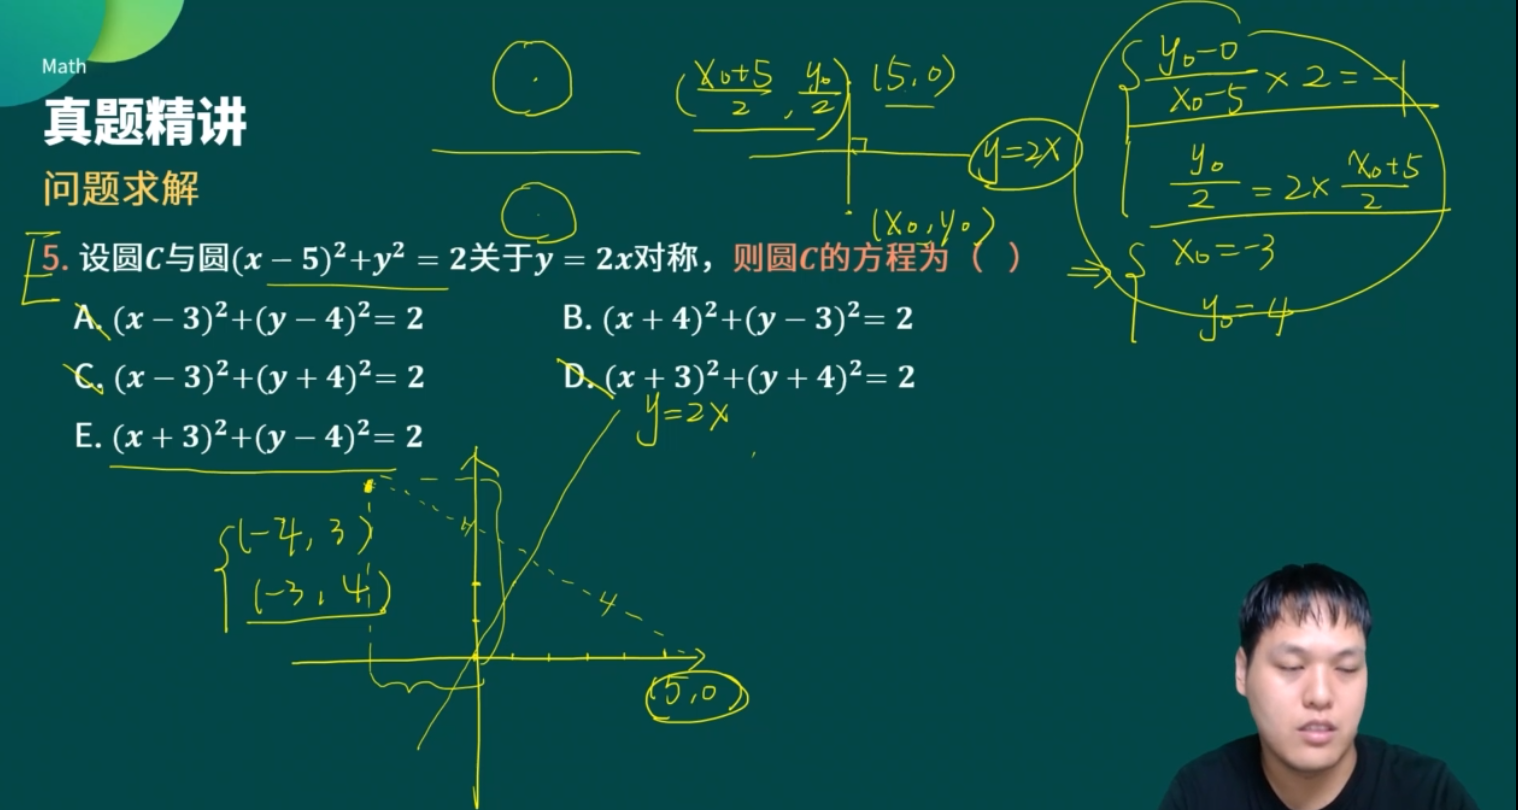 Math
真题精讲
问题求解
5. 设圆C与圆(x − 5)²+y² = 2关于y = 2x对称，则圆C的方程为（ ）
A. (x − 3)²+(y − 4)²= 2
B. (x + 4)²+(y − 3)²= 2
C. (x − 3)²+(y + 4)²= 2
D. (x + 3)²+(y + 4)²= 2
E. (x + 3)²+(y − 4)²= 2
(x₀+5/2, y₀/2)
(5,0)
y=2x
(x₀,y₀)
y₀-0/x₀-5 × 2 = -1
y₀/2 = 2× x₀+5/2
⇒ x₀=-3
y₀=4
y=2x
(-4, 3)
(-3, 4)
(5,0)